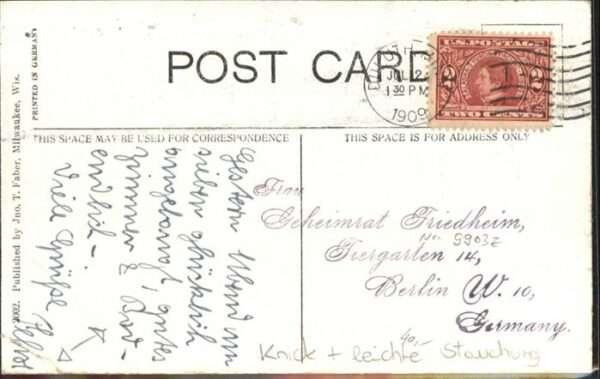 POST CARD
DULUTH
JUL 2
1 30 PM
1909
U.S. POSTAGE
2 2
TWO CENTS
PRINTED IN GERMANY
2002. Published by Jno. T. Faber, Milwaukee, Wis.
THIS SPACE MAY BE USED FOR CORRESPONDENCE
THIS SPACE IS FOR ADDRESS ONLY
Gestern Abend um
sieben glücklich
angelangt, gutes
Zimmer & Bad –
endlich –
Viele Grüße
Frau
Geheimrat Friedheim,
No. 9903z
Tiergarten 14,
Berlin W. 10,
Germany.
Knick + leichte Stauchung